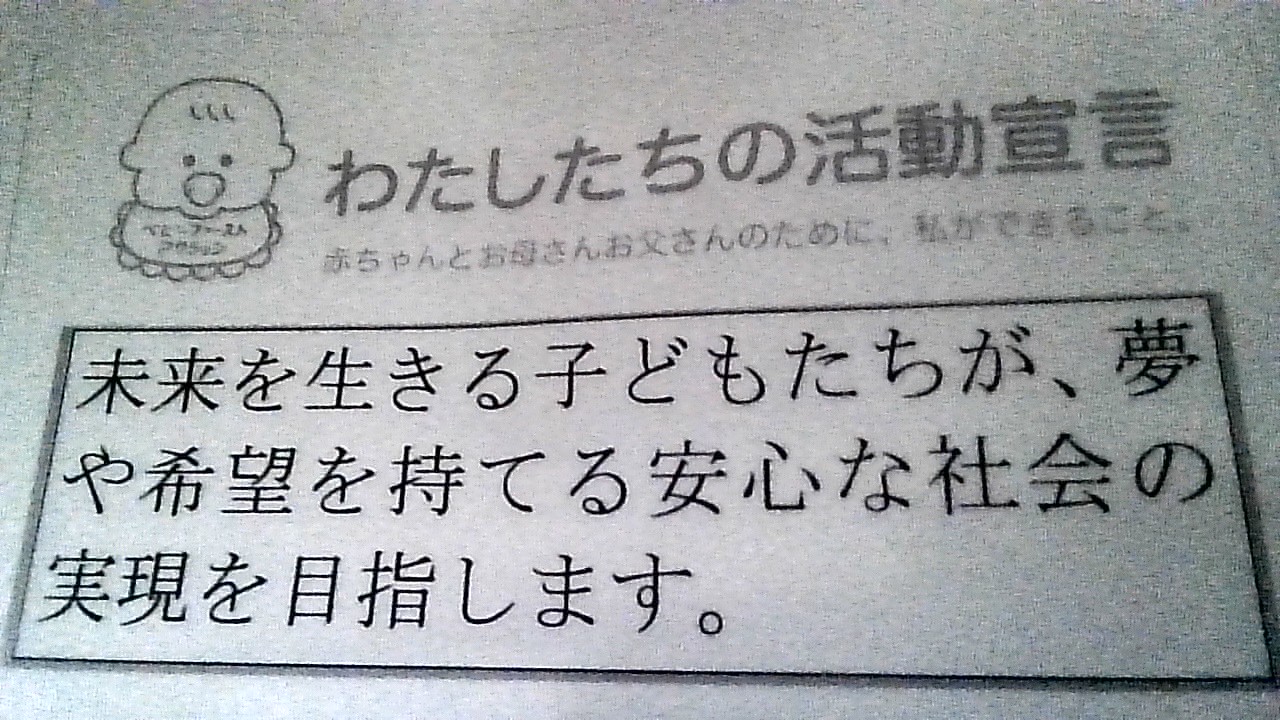 わたしたちの活動宣言
赤ちゃんとお母さんお父さんのために、私ができること。
ベビーファースト
アクション
未来を生きる子どもたちが、夢
や希望を持てる安心な社会の
実現を目指します。